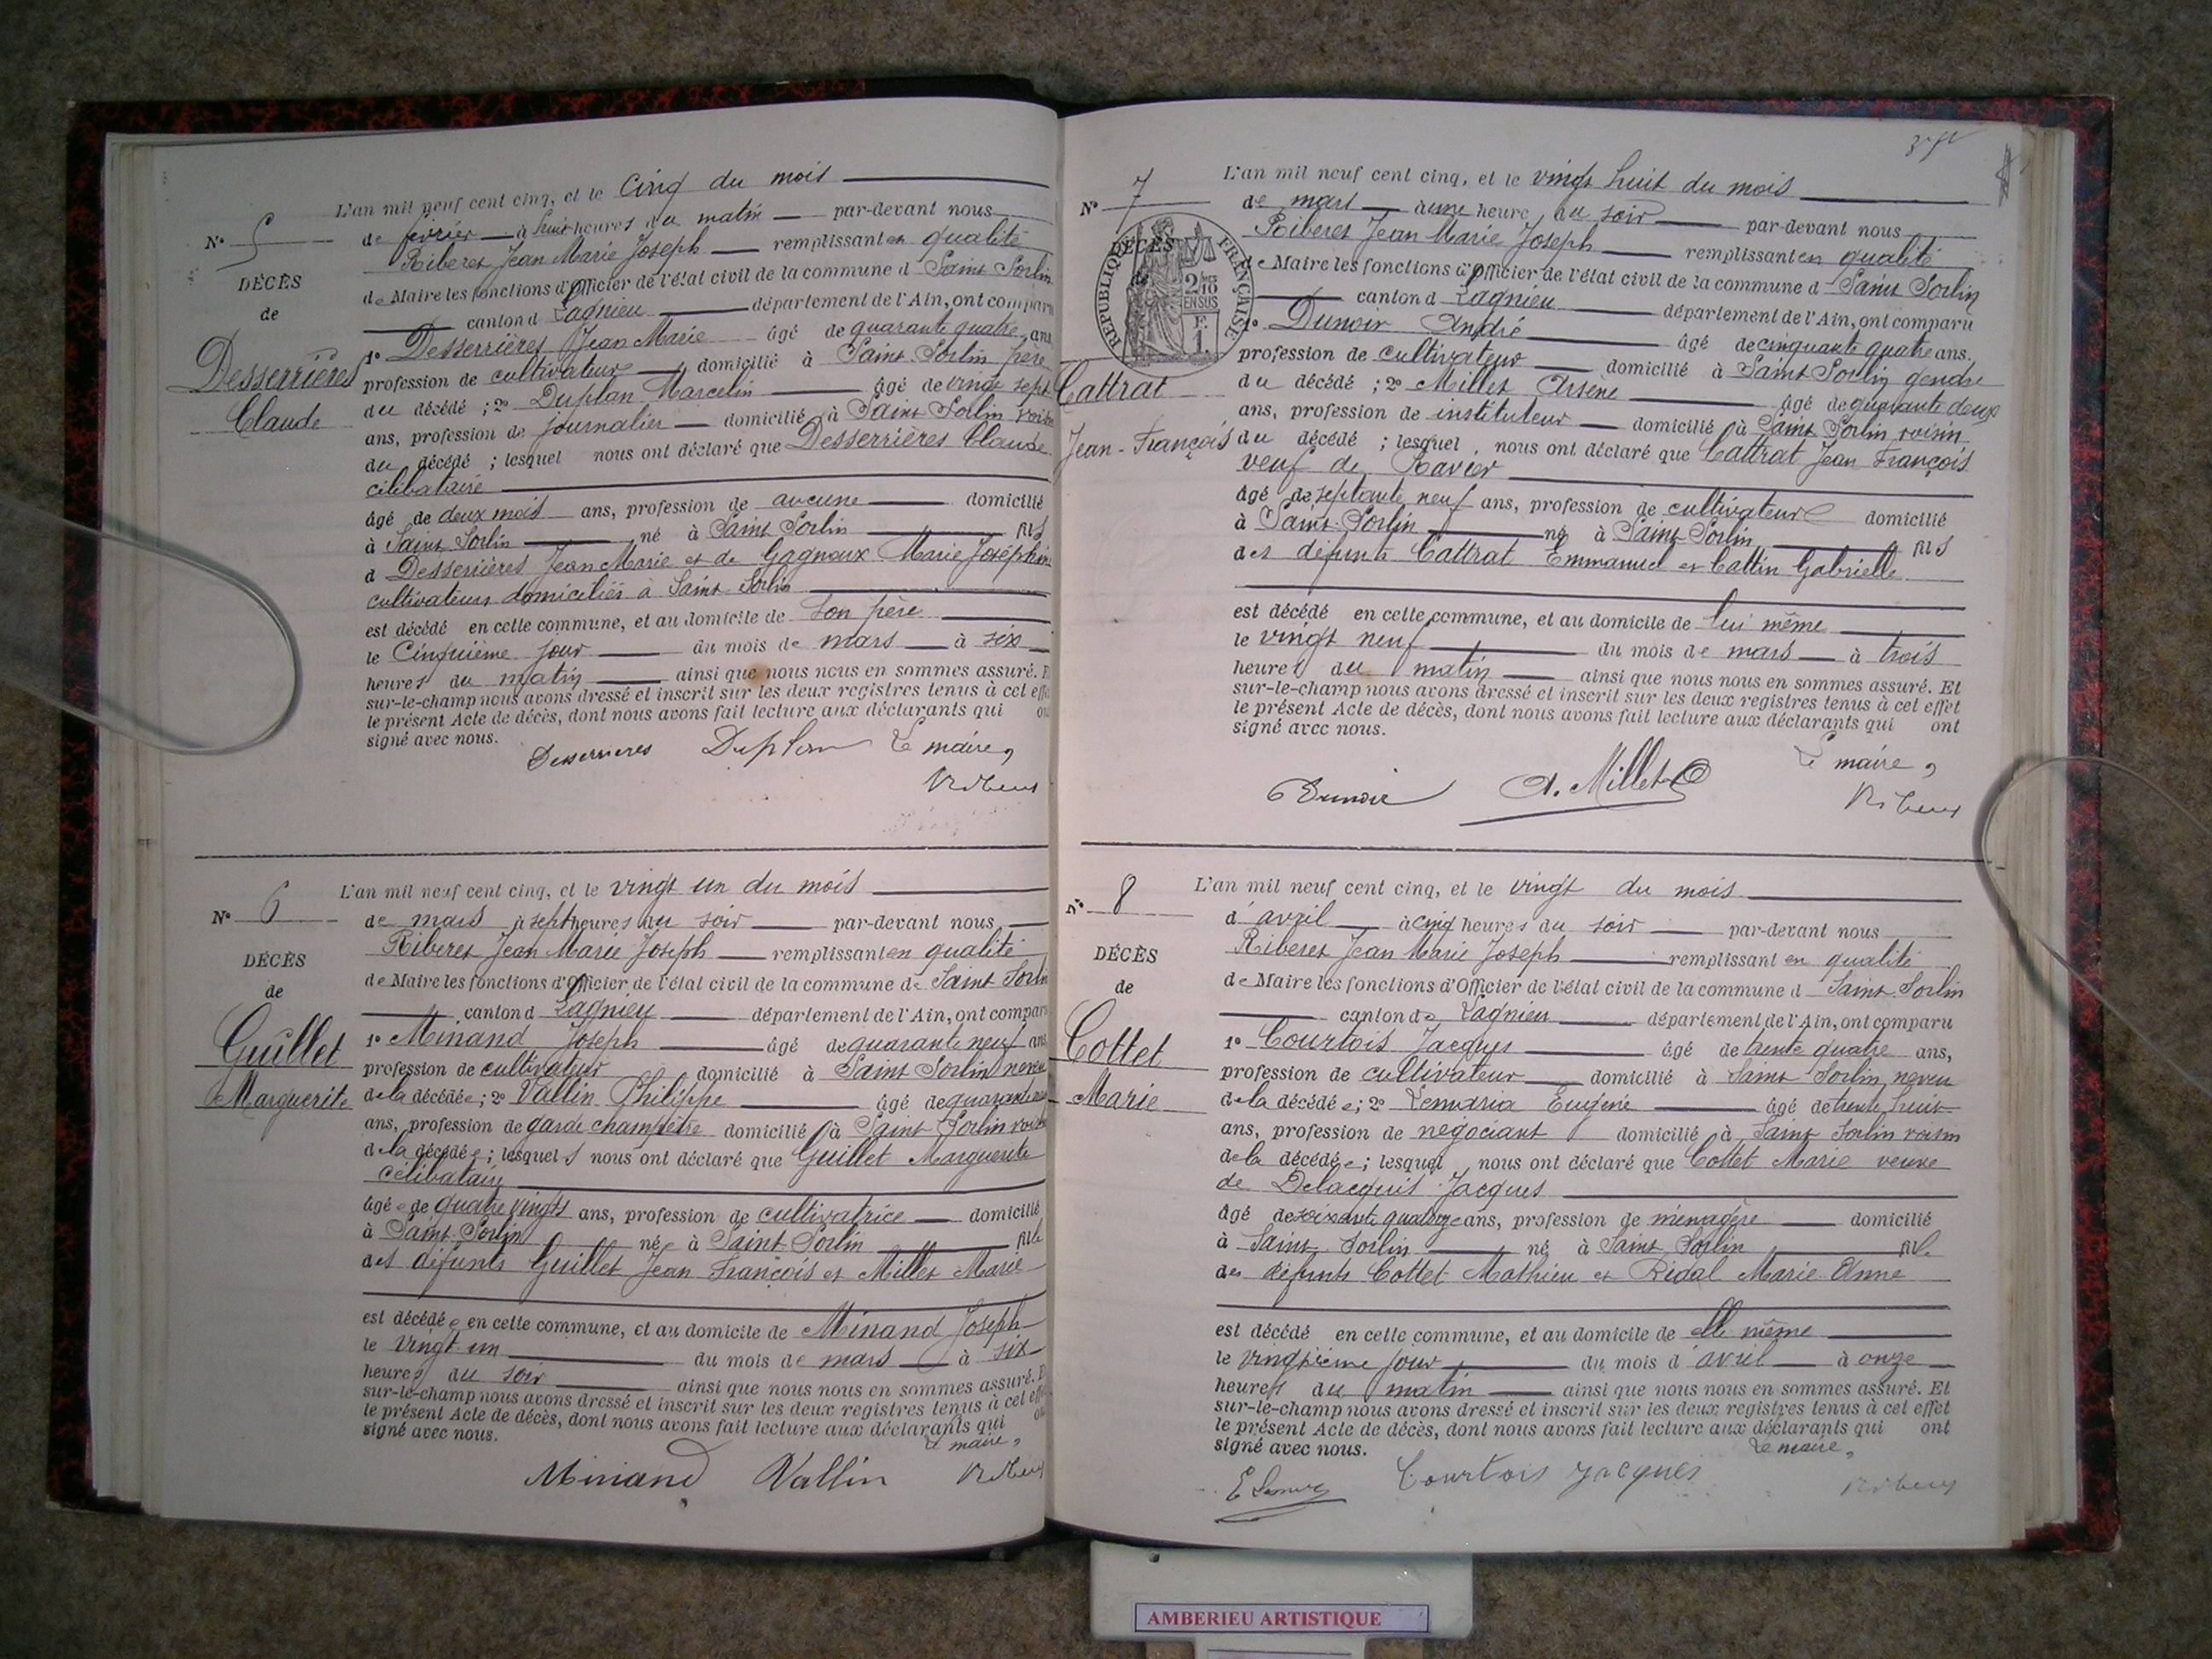 L'an mil neuf cent cinq, et le cinq du mois
N° 5
de février à huit heures du matin par-devant nous
Riberes Jean Marie Joseph remplissant en qualité
DÉCÈS
de Maire les fonctions d'Officier de l'état civil de la commune d Saint Sorlin
de
canton d Lagnieu département de l'Ain, ont comparu
1° Desserrières Jean Marie âgé de quarante quatre ans
Desserrières
profession de cultivateur domicilié à Saint Sorlin père
Claude
du décédé ; 2° Duplan Marcelin âgé de vingt sept
ans, profession de journalier domicilié à Saint Sorlin voisin
du décédé ; lesquel nous ont déclaré que Desserrières Claude
célibataire
âgé de deux mois ans, profession de aucune domicilié
à Saint Sorlin né à Saint Sorlin fils
d Desserrières Jean Marie et de Gagnoux Marie Joséphine
cultivateurs domiciliés à Saint Sorlin
est décédé en cette commune, et au domicile de son père
le Cinquième jour du mois de mars à six
heures du matin ainsi que nous nous en sommes assuré. E
sur-le-champ nous avons dressé et inscrit sur les deux registres tenus à cet effe
le présent Acte de décès, dont nous avons fait lecture aux déclarants qui on
signé avec nous.
Desserrieres Duplan Le maire,
Riberes
L'an mil neuf cent cinq, et le vingt un du mois
N° 6
de mars à sept heures du soir par-devant nous
Riberes Jean Marie Joseph remplissant en qualité
DÉCÈS
de Maire les fonctions d'Officier de l'état civil de la commune de Saint Sorlin
de
canton d Lagnieu département de l'Ain, ont comparu
Guillet
1° Minand Joseph âgé de quarante neuf ans
profession de cultivateur domicilié à Saint Sorlin neveu
Marguerite
de la décédée ; 2° Vallin Philippe âgé de quarante
ans, profession de garde champêtre domicilié à Saint Sorlin voisin
de la décédée ; lesquels nous ont déclaré que Guillet Marguerite
célibataire
âgée de quatre vingts ans, profession de cultivatrice domicilié
à Saint Sorlin née à Saint Sorlin fille
des défunts Guillet Jean François et Millet Marie
est décédée en cette commune, et au domicile de Minand Joseph
le vingt un du mois de mars à six
heures du soir ainsi que nous nous en sommes assuré. E
sur-le-champ nous avons dressé et inscrit sur les deux registres tenus à cet effe
le présent Acte de décès, dont nous avons fait lecture aux déclarants qui on
signé avec nous.
Le maire,
Minand Vallin Riberes
L'an mil neuf cent cinq, et le vingt huit du mois
N° 7
de mars à une heure du soir par-devant nous
Riberes Jean Marie Joseph remplissant en qualité
DÉCÈS
de
RÉPUBLIQUE FRANÇAISE
2/10 EN SUS
F. 1
de Maire les fonctions d'Officier de l'état civil de la commune d Saint Sorlin
canton d Lagnieu département de l'Ain, ont comparu
1° Dunoir André âgé de cinquante quatre ans.
profession de cultivateur domicilié à Saint Sorlin gendre
Cattrat
du décédé ; 2° Millet Arsène âgé de quarante deux
ans, profession de instituteur domicilié à Saint Sorlin voisin
Jean-François
du décédé ; lesquel nous ont déclaré que Cattrat Jean François
veuf de Ravier
âgé de septante neuf ans, profession de cultivateur domicilié
à Saint Sorlin né à Saint Sorlin fils
des défunts Cattrat Emmanuel et Cattin Gabrielle
est décédé en cette commune, et au domicile de lui même
le vingt neuf du mois de mars à trois
heures du matin ainsi que nous nous en sommes assuré. Et
sur-le-champ nous avons dressé et inscrit sur les deux registres tenus à cet effet
le présent Acte de décès, dont nous avons fait lecture aux déclarants qui ont
signé avec nous.
Le maire,
Dunoir A. Millet Riberes
L'an mil neuf cent cinq, et le vingt du mois
N° 8
d'avril à cinq heures du soir par-devant nous
Riberes Jean Marie Joseph remplissant en qualité
DÉCÈS
de Maire les fonctions d'Officier de l'état civil de la commune d Saint Sorlin
de
canton de Lagnieu département de l'Ain, ont comparu
Cottet
1° Courtois Jacques âgé de trente quatre ans,
profession de cultivateur domicilié à Saint Sorlin, neveu
Marie
de la décédée ; 2° Lemaria Eugène âgé de trente huit
ans, profession de négociant domicilié à Saint Sorlin voisin
de la décédée ; lesquel nous ont déclaré que Cottet Marie veuve
de Delacquis Jacques
âgé de soixante quatorze ans, profession de ménagère domicilié
à Saint Sorlin né à Saint Sorlin fille
des défunts Cottet Mathieu et Rigal Marie Anne
est décédé en cette commune, et au domicile de elle même
le vingtième jour du mois d'avril à onze
heures du matin ainsi que nous nous en sommes assuré. Et
sur-le-champ nous avons dressé et inscrit sur les deux registres tenus à cet effet
le présent Acte de décès, dont nous avons fait lecture aux déclarants qui ont
signé avec nous.
Le maire,
Courtois Jacques Riberes
AMBERIEU ARTISTIQUE